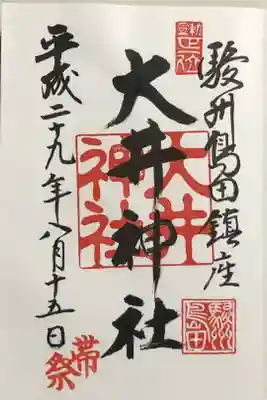 駿州島田鎮座
大井神社
大井神社
平成二十九年八月十五日
帯祭